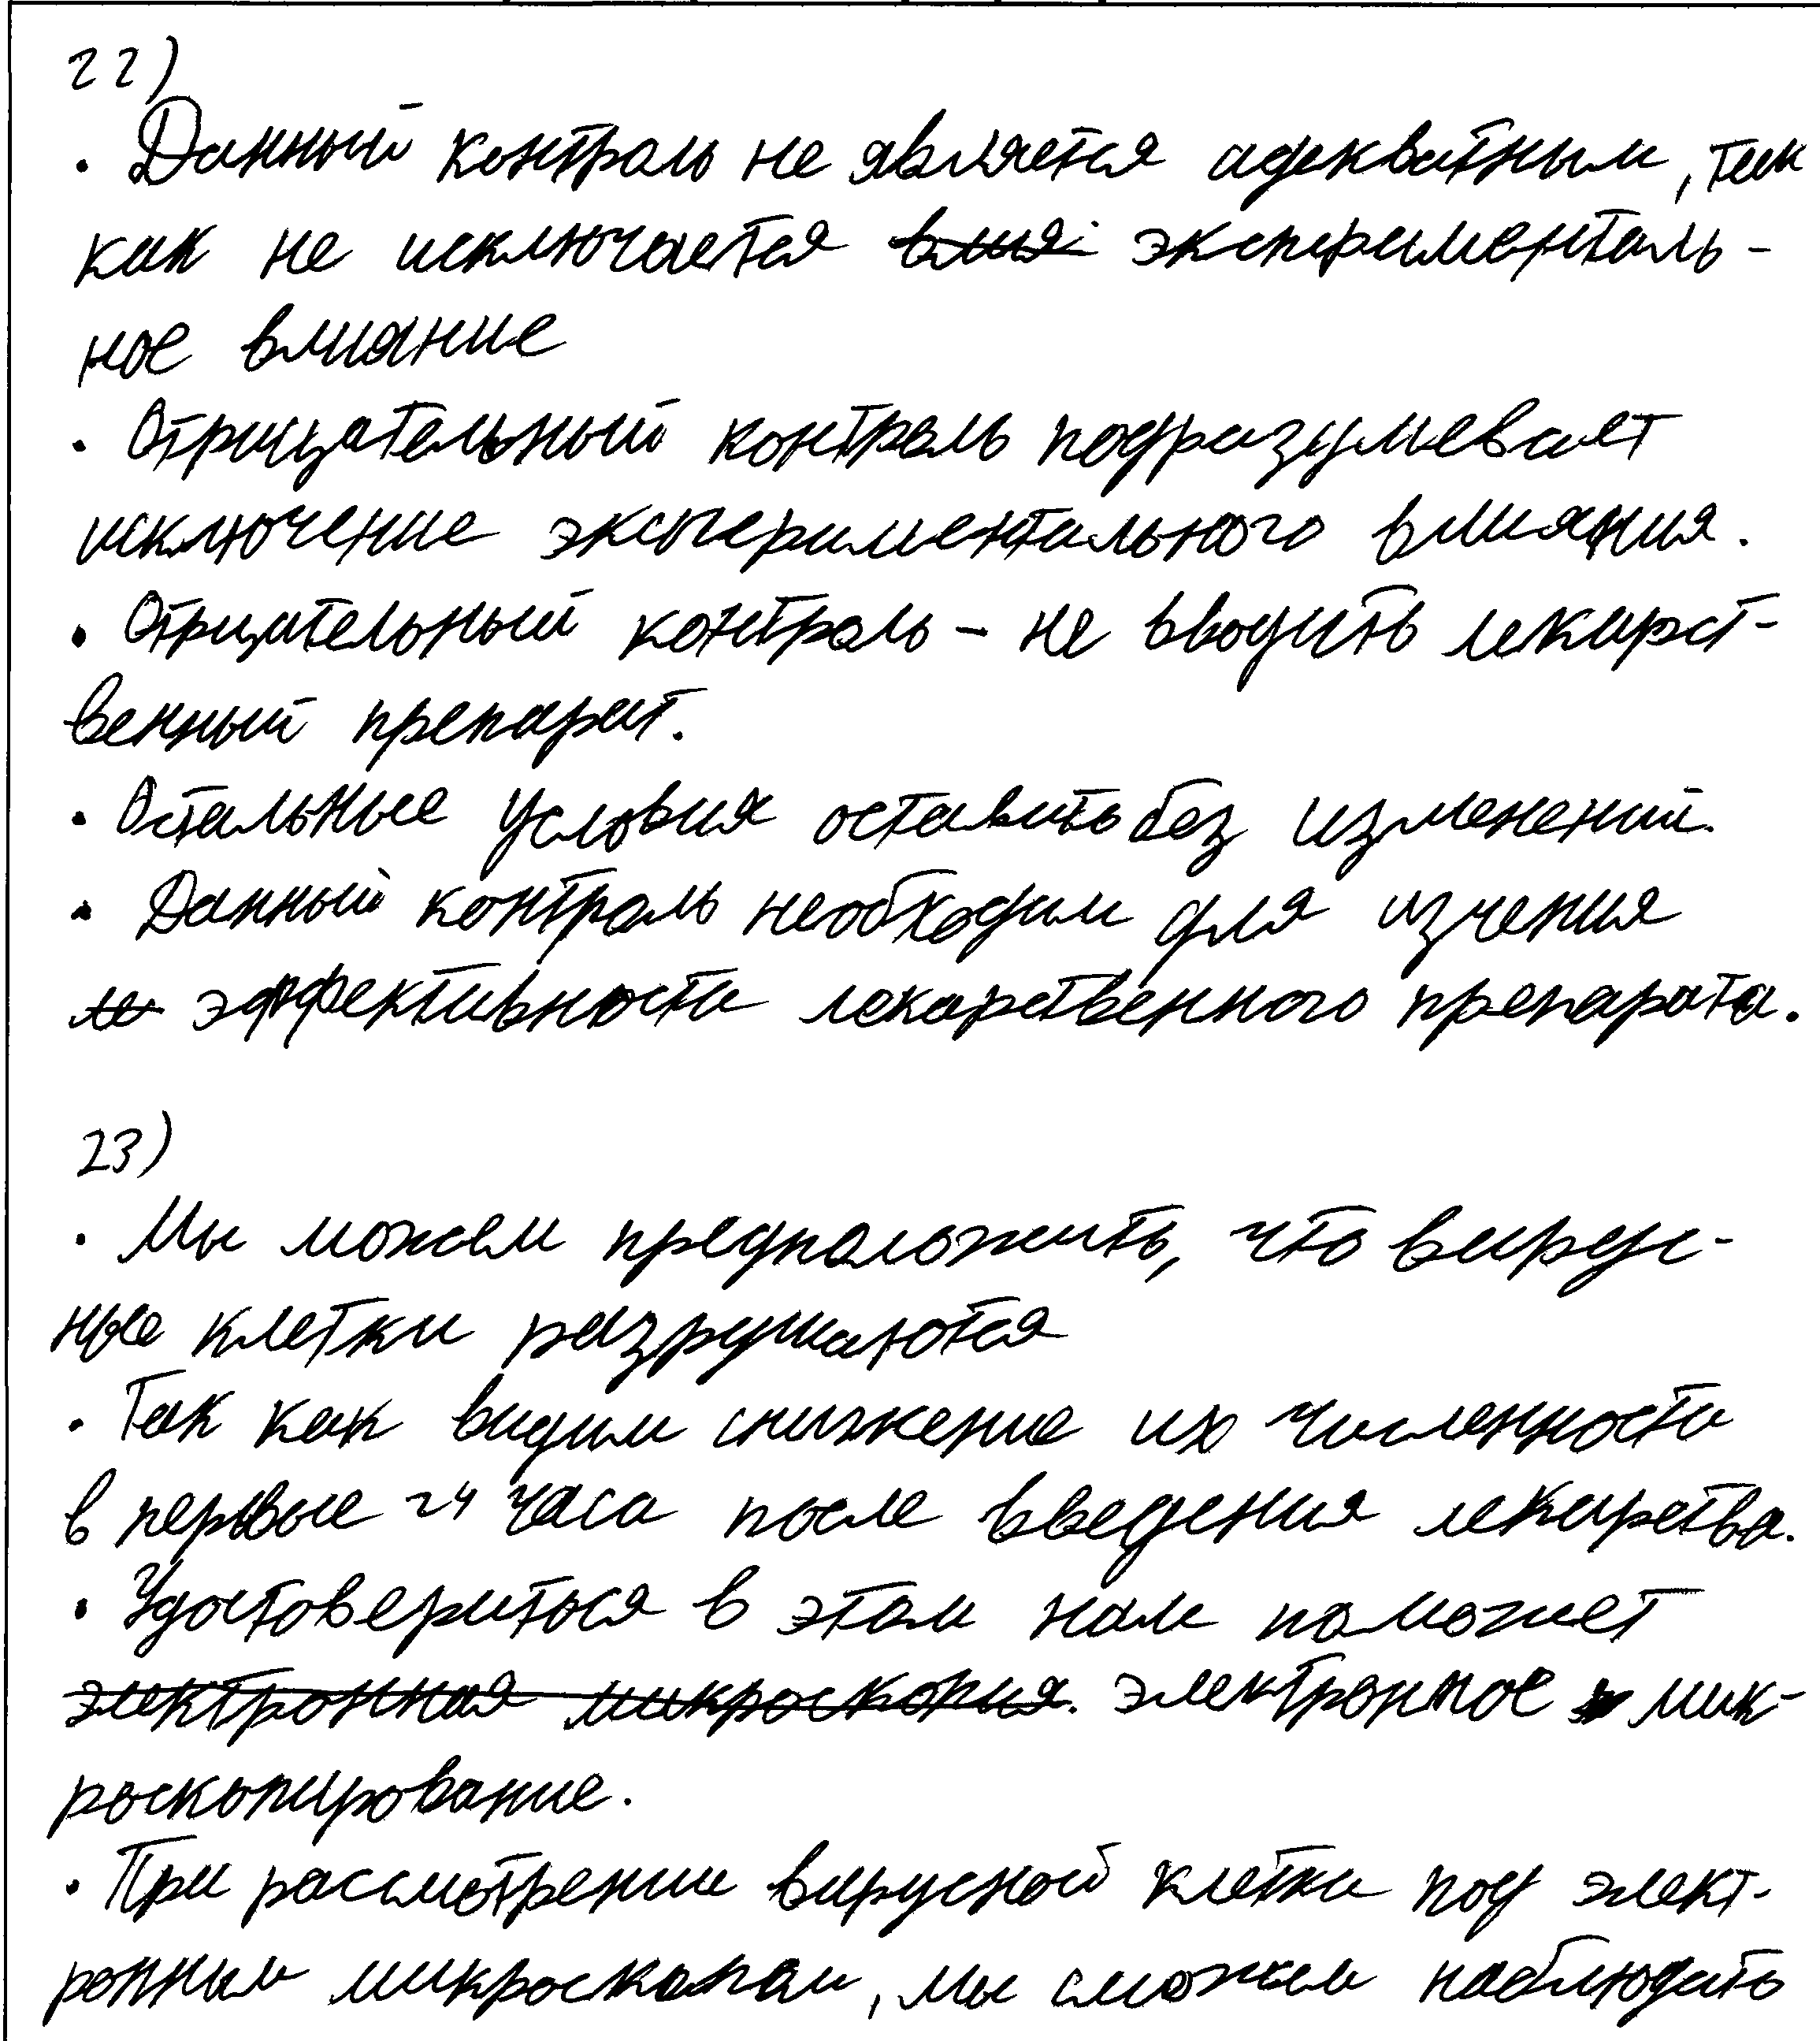 22)
· Данный контроль не является адекватным, так
как не исключается влия эксперименталь-
ное влияние
· Отрицательный контроль подразумевает
исключение экспериментального влияния.
· Отрицательный контроль - не вводить лекарст-
венный препарат.
· Остальные условия оставить без изменений.
· Данный контроль необходим для изучения
ле эффективности лекарственного препарата.
23)
· Мы можем предположить, что вирус-
ные клетки разрушаются
· Так как видим снижение их численности
в первые 24 часа после введения лекарства.
· Удостовериться в этом нам поможет
электронная микроскопия. электронное мик-
роскопирование.
· При рассмотрении вирусной клетки под элект-
ронным микроскопом, мы сможем наблюдать